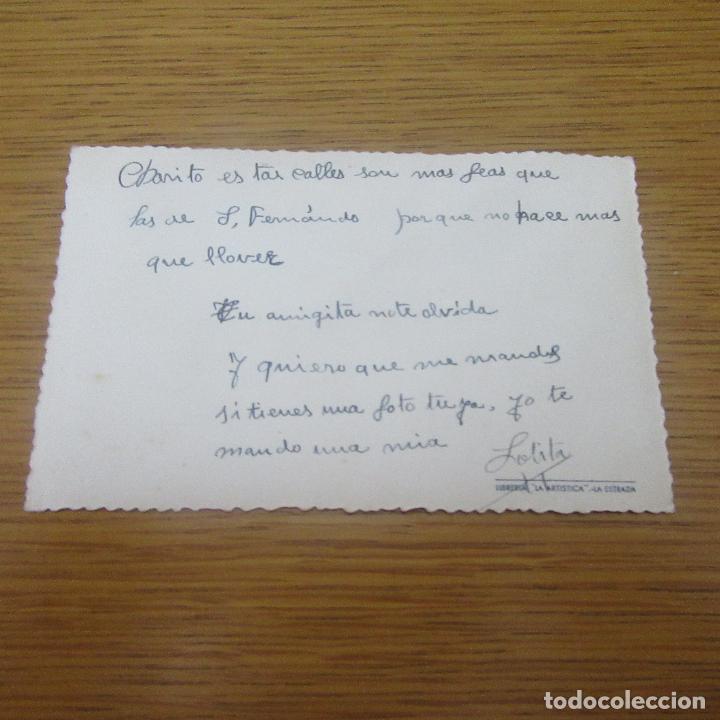 Charito es tas calles son mas feas que
las de S, Fernándo porque no hace mas
que llover
Tu amigita no te olvida
Y quiero que me mandes
si tienes una foto tuya, yo te
mando una mia
Lolita
LIBRERIA "LA ARTISTICA".-LA ESTRADA
todocoleccion